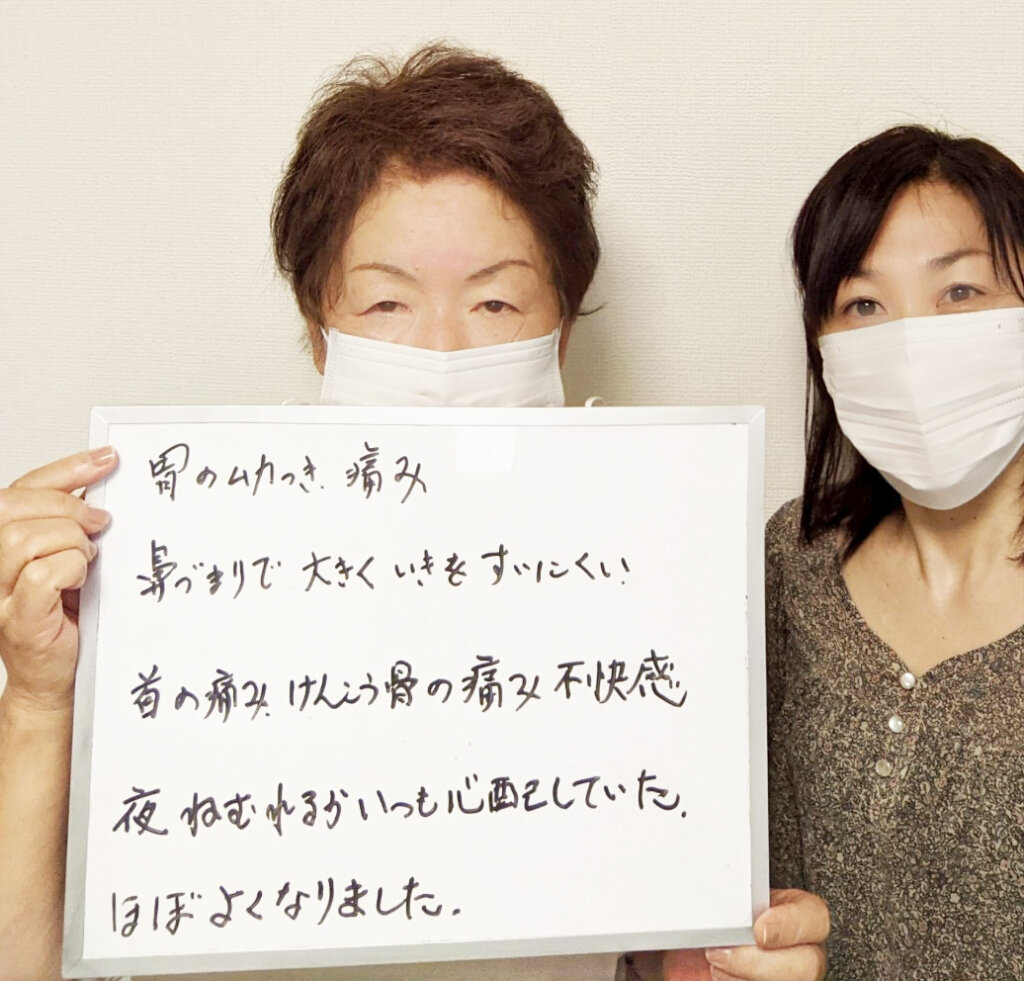 胃のムカつき、痛み
鼻づまりで 大きく いきを すいにくい
首の痛み、けんこう骨の痛み 不快感
夜 ねむれるか いつも心配していた。
ほぼ よくなりました。